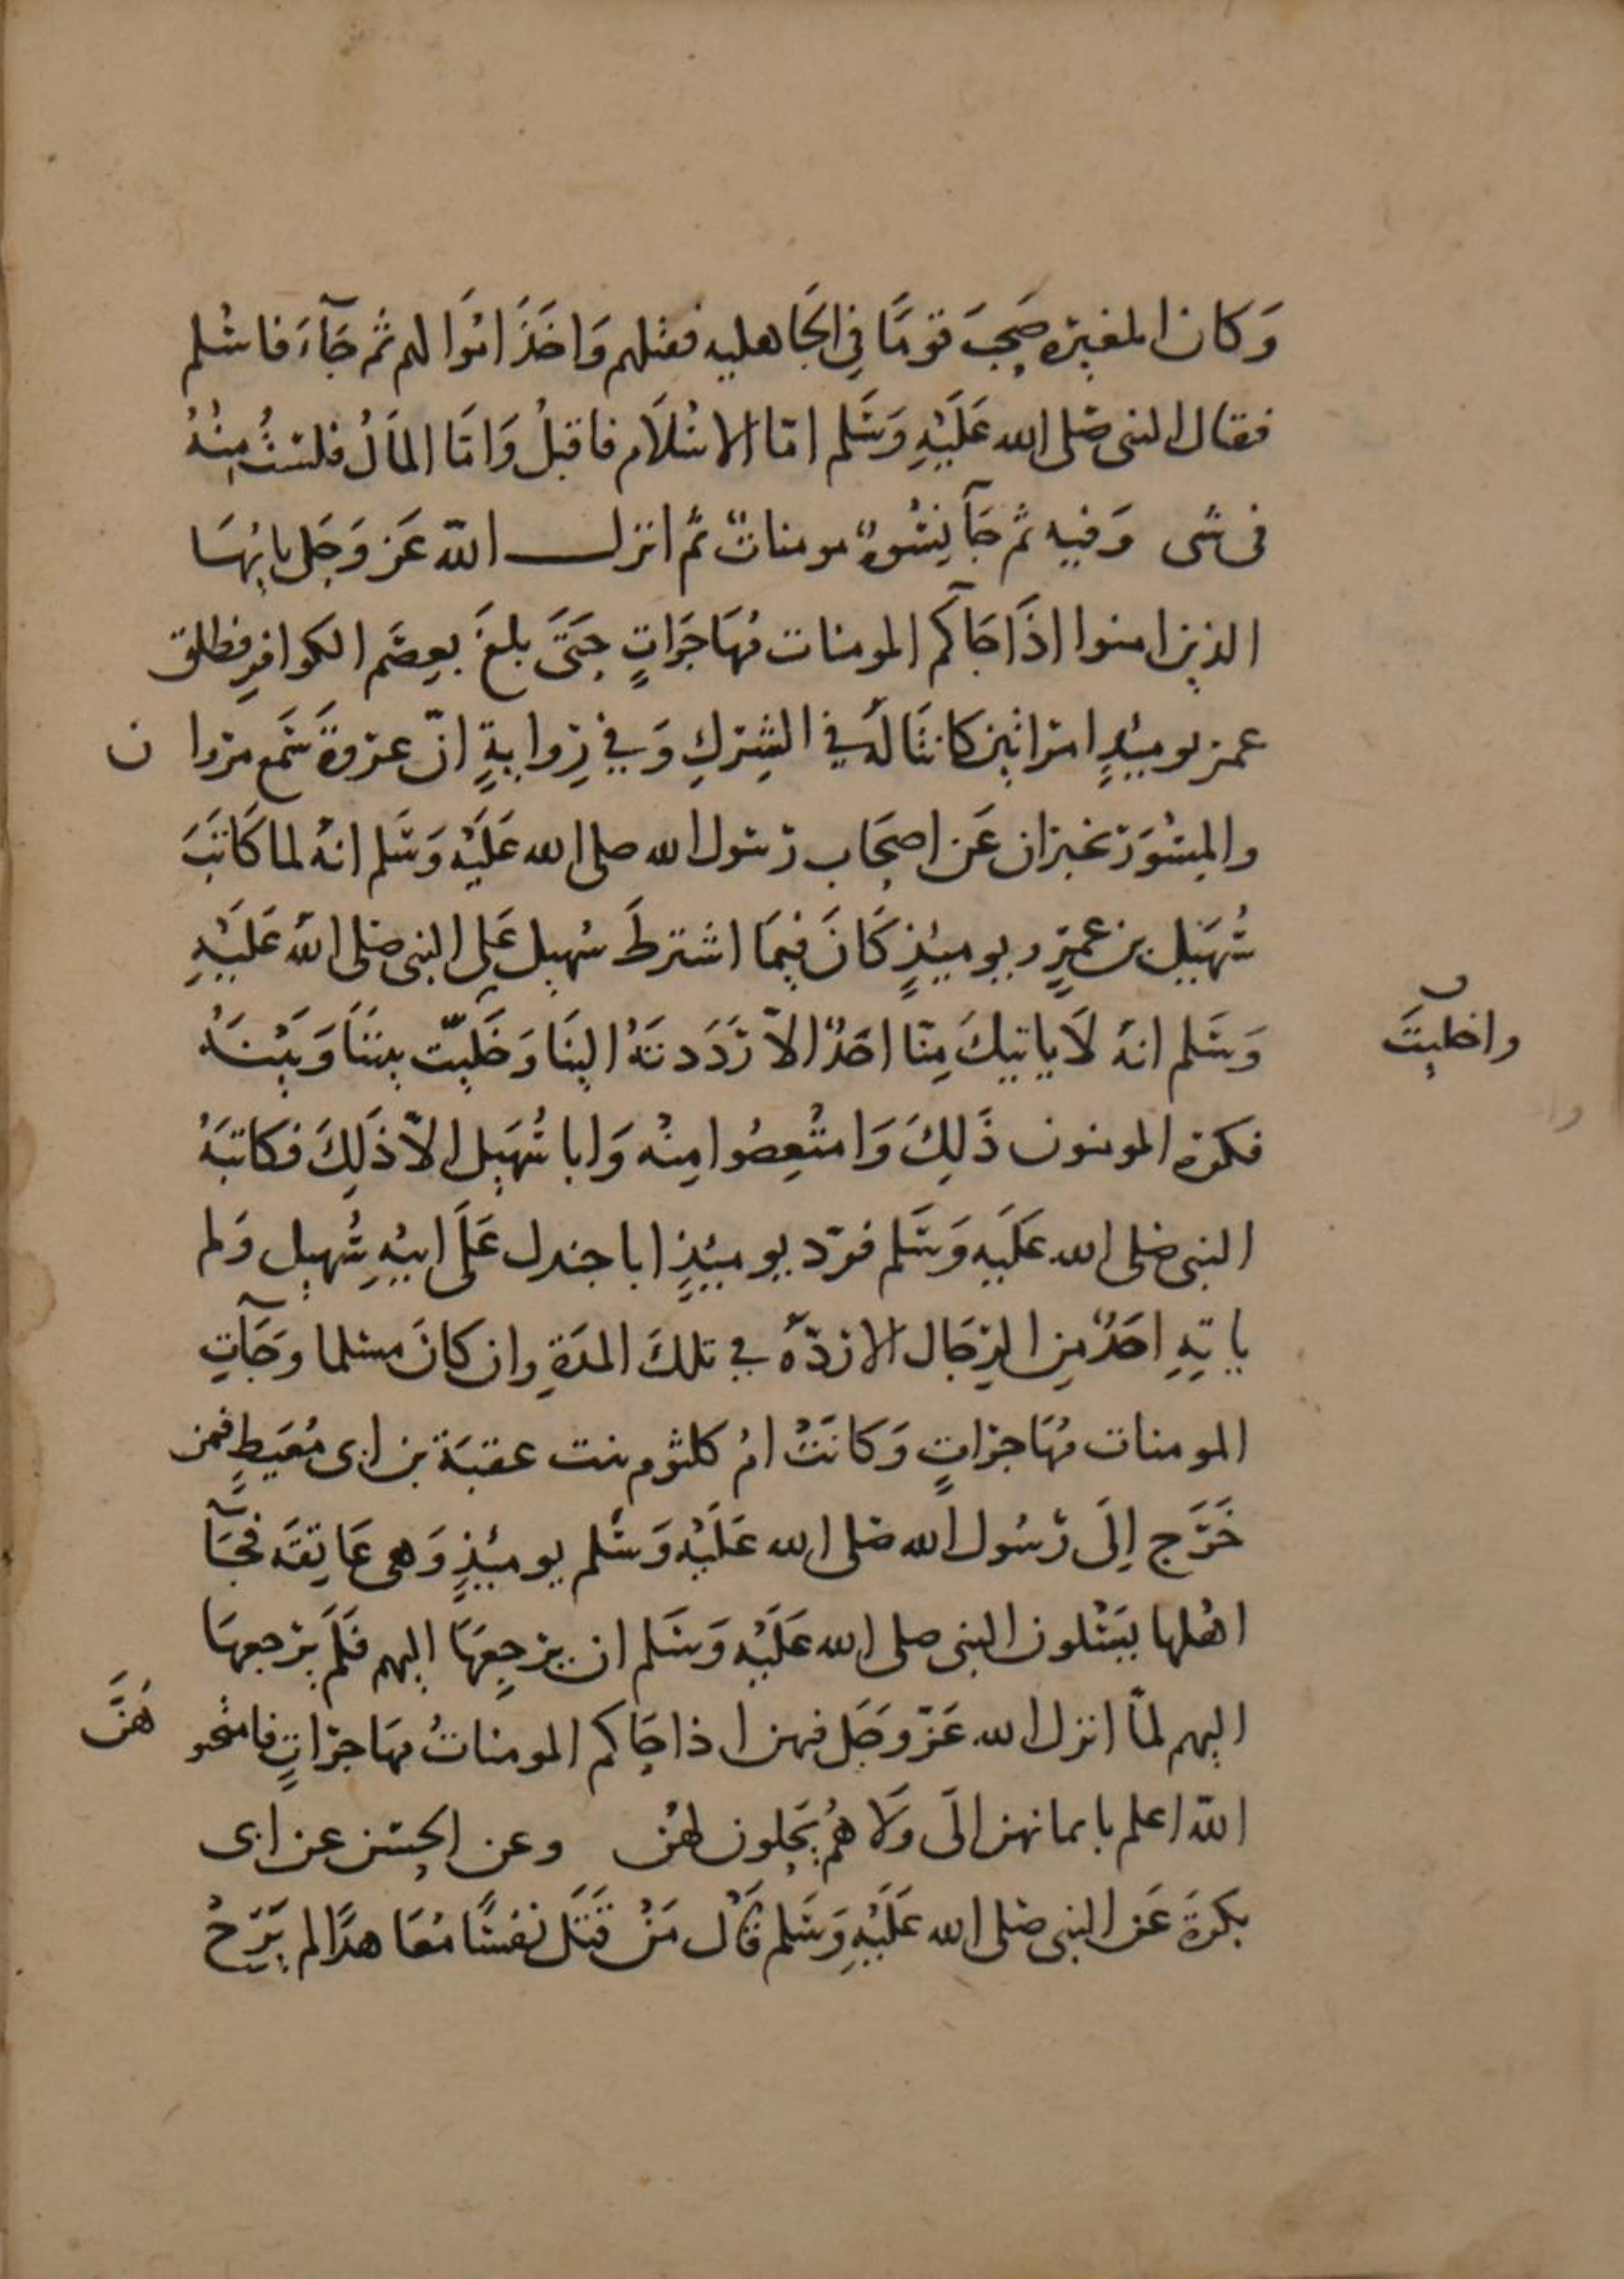 وَكان المغيره صَحِبَ قومًا فِي الجَاهليه فقتلهم وَاخَذَ امْوَالهم ثم جَآءَ فاسْلم
فقال النبى صَلى الله عَلَيْهِ وَسَلم امّا الاسْلَام فاقبلُ وَامّا المَالُ فلسْتُ مِنْهُ
فى شى وَفيه ثم جَآ نِسْوةٌ مومناتٌ ثم انزل الله عَز وَجَل يايهَا
الذين امنوا اذَا جَاكم المومنات مُهَاجَرَاتٍ حَتىَّ بلغَ بِعِصَم الكوافرِ فطلق
عمر يوميئذٍ امراتين كانتَا لَهُ فِي الشِركِ وَفِي رِوايةٍ انّ عروةَ سَمع مروان
والمِسْوَر يخبران عَن اصحَاب رَسول الله صلى الله عَلَيْه وَسَلم انهُ لما كَاتَبَ
سُهَيْل بن عمرٍو يوميئذٍ كَانَ فيمَا اشترطَ سُهيل عَلى النبى صَلى الله عَلَيْهِ
وَسَلم انهُ لَا ياتيكَ مِنّا احَدٌ الاّ رَدَدتَهُ الينَا وَخَليّت بيننَا وَبَيْنَهُ
واخليتَ
فكره المومنون ذَلِكَ وَامتُعِضُوا مِنْه وَابا سُهَيل الاّ ذَلِكَ فكاتبَهُ
النبى صَلى الله عَلَيه وَسَلم فردّ يوميئذٍ ابا جندل عَلَى ابيْهِ سُهيل وَلم
ياتِهِ احَدٌ مِن الرِجَال الا ردّهُ فِي تلكَ المدَةِ وان كانَ مسلما وجَآتِ
المومنات مُهَاجراتٍ وَكانَتْ امُ كلثوم بنت عقبَة بن ابى مُعَيطٍ فمن
خَرَج اِلَى رَسُول الله صَلى الله عَلَيْه وَسَلم يوميئذٍ وَهى عَاتِقَه فجَآ
اهْلها يسَئلون النبى صلى الله عَلَيْه وَسَلم ان يرجِعهَا اليهم فَلَم يَرجعهَا
اليهم لمّا انزل الله عَزّ وجَل فيهن اذا جَاكم المومناتُ مهَاجرَاتٍ فامتحنوهَنَّ
الله اعلم بايمانهن الَى وَلَا هُم يَحِلون لهُن وعن الحسَن عن ابى
بكرَةَ عَن النبى صَلى الله عَلَيْهِ وَسَلم قَالَ مَنْ قَتَلَ نَفسًا مُعَاهدًا لم يَرَحْ